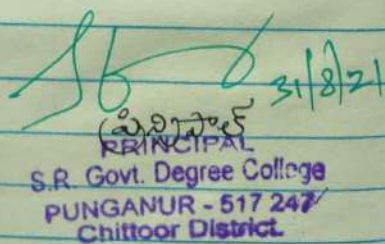 31/8/21
ప్రిన్సిపాల్
PRINCIPAL
S.R. Govt. Degree College
PUNGANUR - 517 247
Chittoor District.